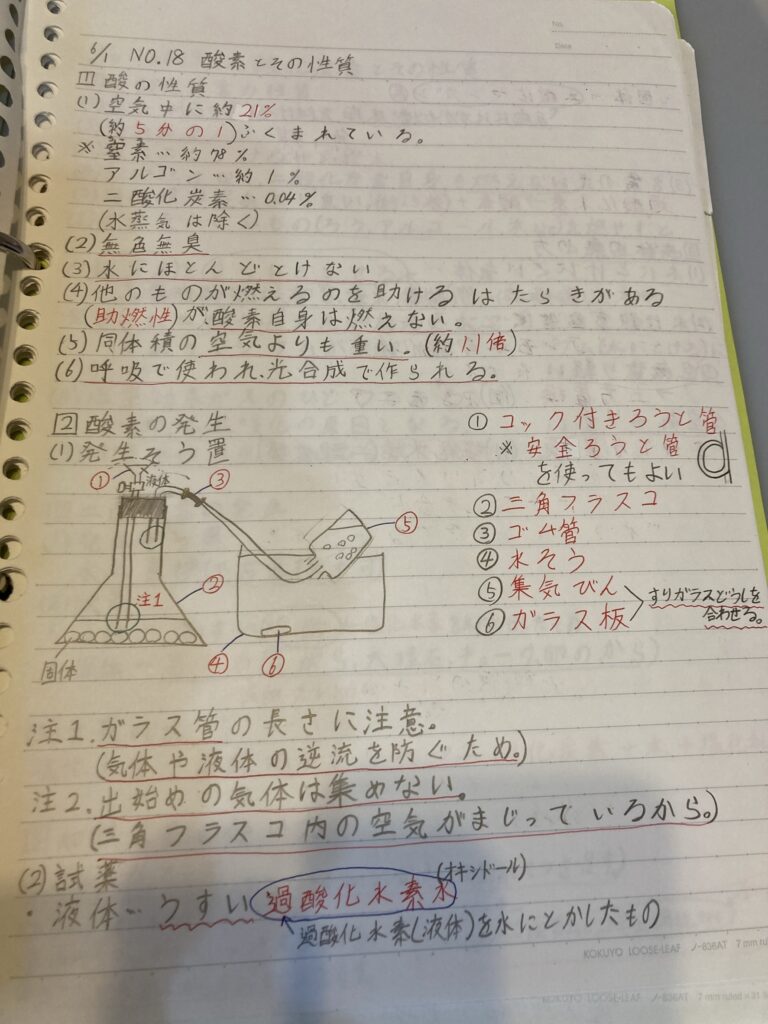 No.
Date
6/1 NO.18 酸素とその性質
1 酸の性質
(1) 空気中に約21%
(約5分の1)ふくまれている。
※ 窒素…約78%
アルゴン…約1%
二酸化炭素…0.04%
(水蒸気は除く)
(2) 無色無臭
(3) 水にほとんどとけない
(4) 他のものが燃えるのを助けるはたらきがある
(助燃性)が、酸素自身は燃えない。
(5) 同体積の空気よりも重い。(約1.1倍)
(6) 呼吸で使われ、光合成で作られる。
2 酸素の発生
(1) 発生そう置
① 液体 ③
⑤
注1 ②
固体 ④ ⑥
① コック付きろうと管
※ 安全ろうと管
を使ってもよい
② 三角フラスコ
③ ゴム管
④ 水そう
⑤ 集気びん
⑥ ガラス板
すりガラスどうしを
合わせる。
注1. ガラス管の長さに注意。
(気体や液体の逆流を防ぐため。)
注2. 出始めの気体は集めない。
(三角フラスコ内の空気がまじっているから。)
(2) 試薬
(オキシドール)
・液体…うすい過酸化水素水
過酸化水素(液体)を水にとかしたもの
KOKUYO LOOSE-LEAF ノ-836AT 7 mm ru